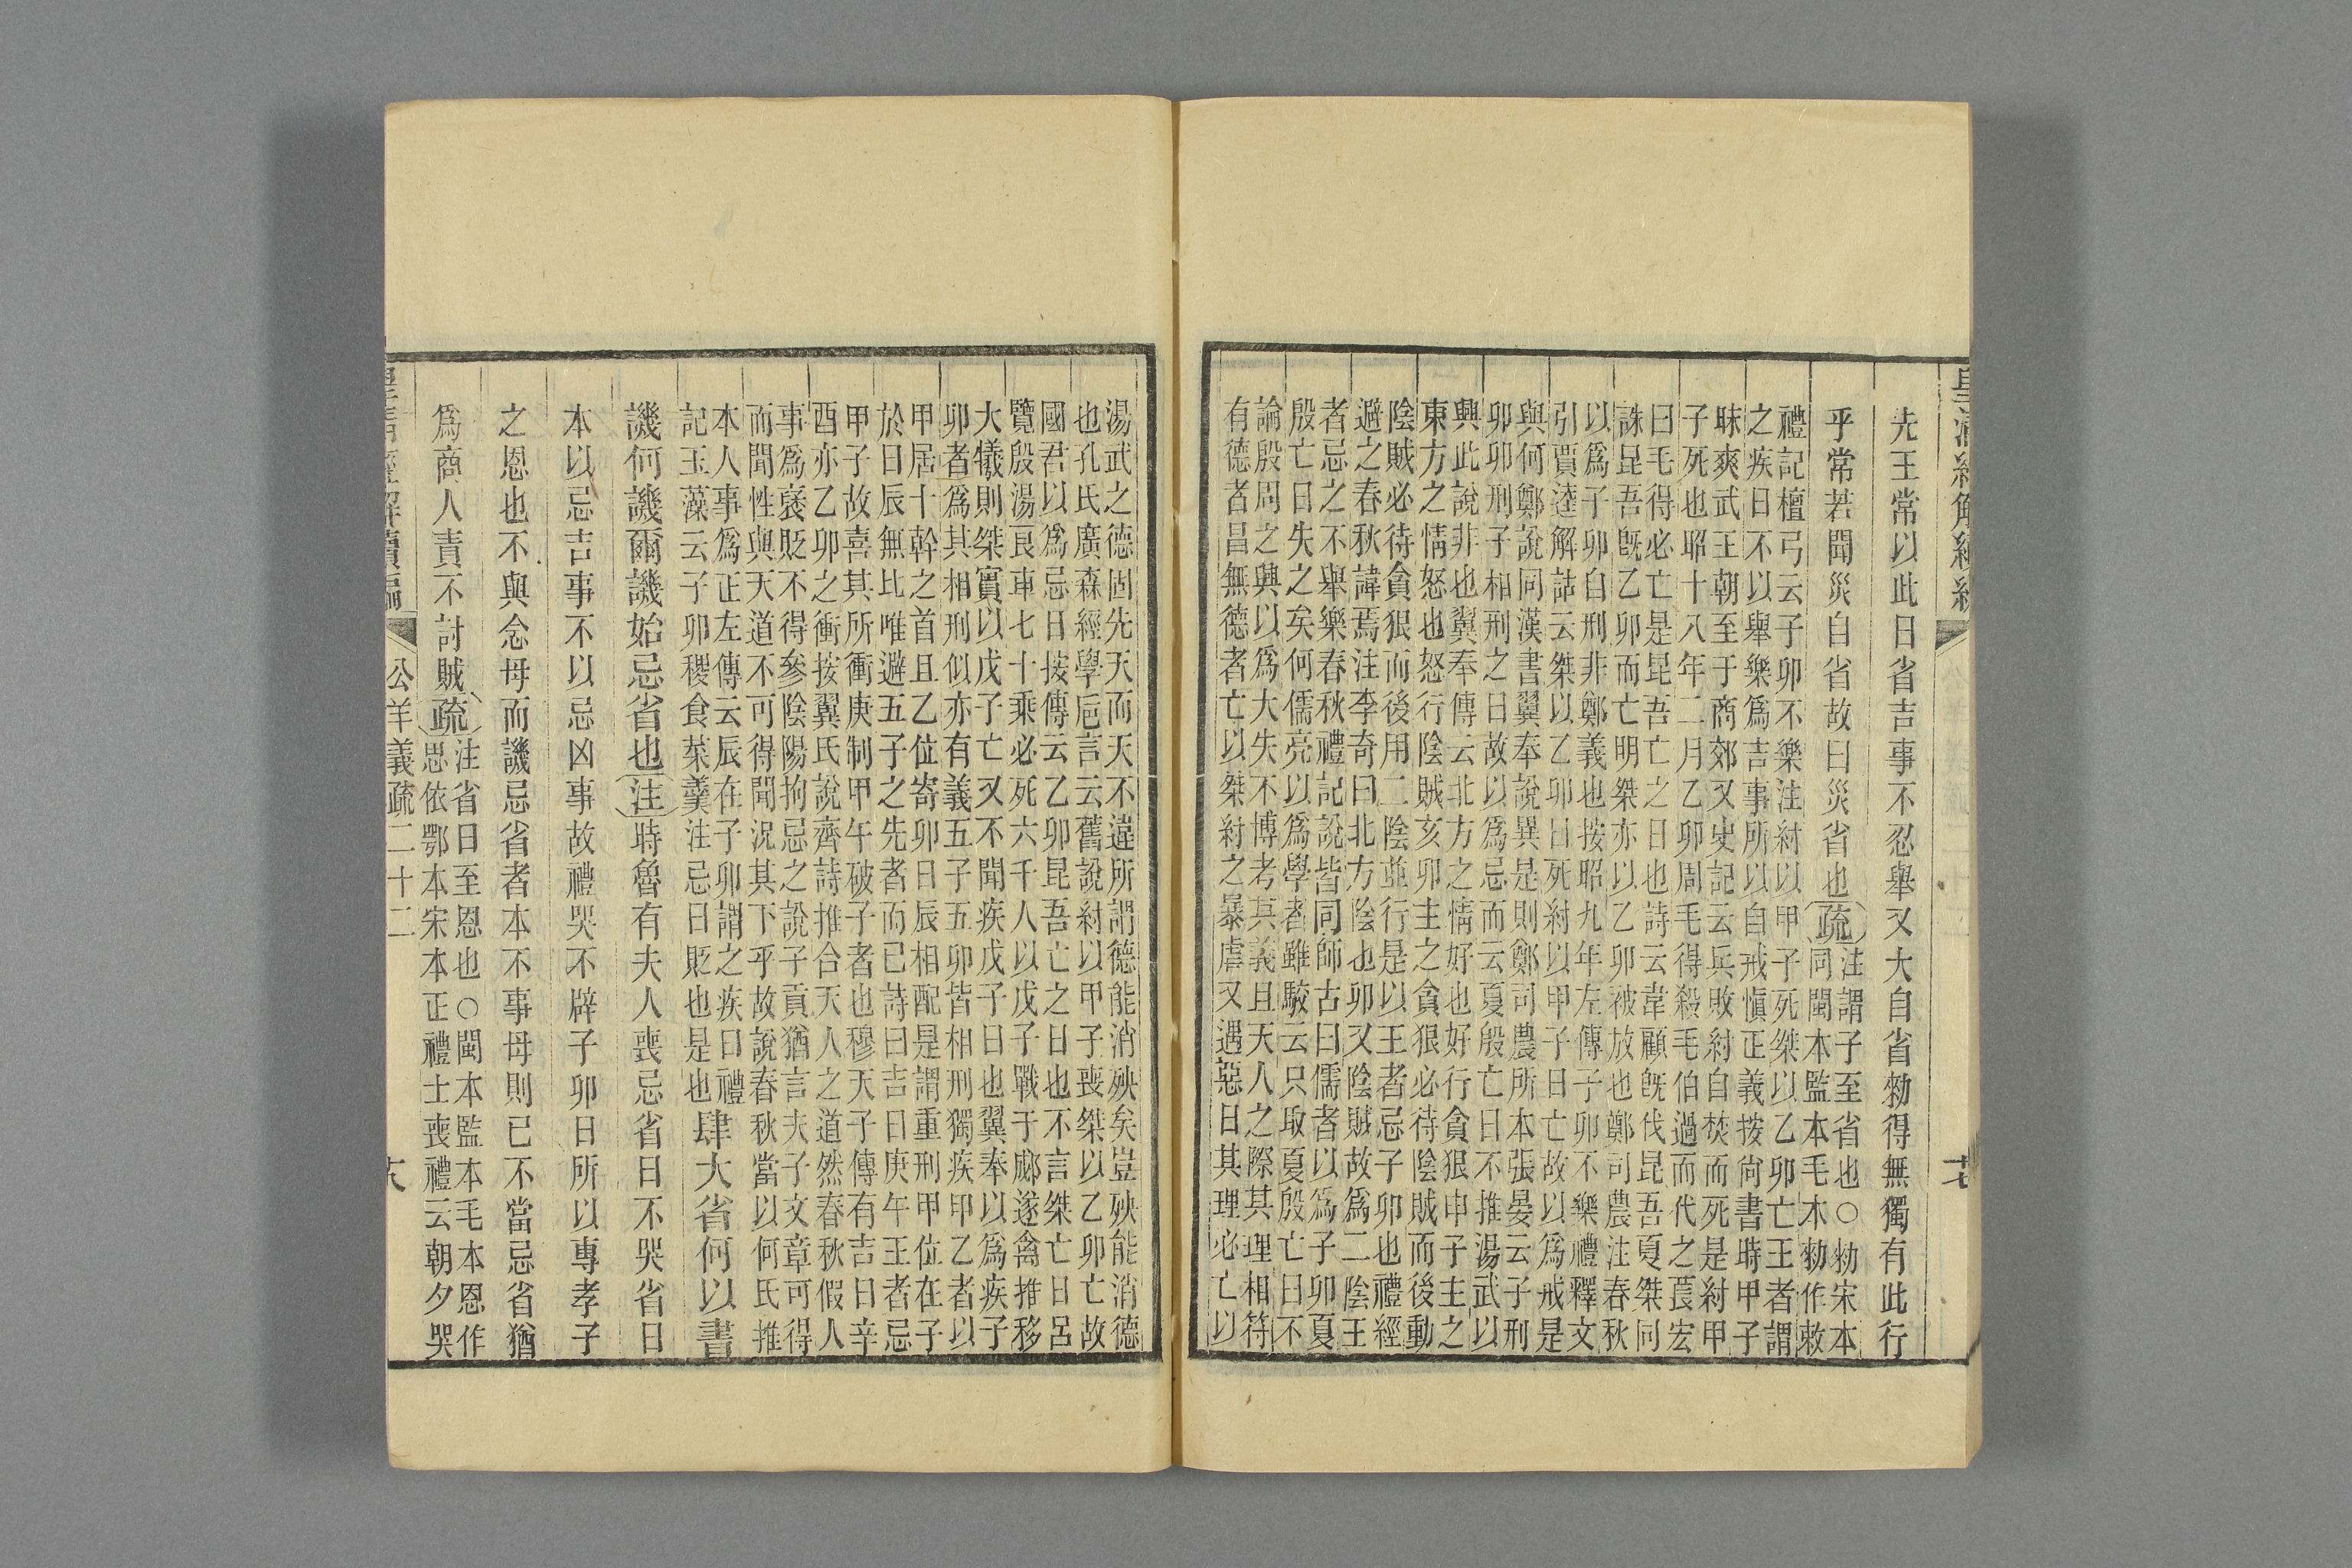 先王常以此日省吉事不忍舉又大自省勑得無獨有此行
乎常若聞災自省故曰災省也
疏
注謂子至省也○勑宋本
同閩本監本毛本勑作敕
禮記檀弓云子卯不樂注紂以甲子死桀以乙卯亡王者謂
之疾日不以舉樂爲吉事所以自戒愼正義按尙書時甲子
昧爽武王朝至于商郊又史記云兵敗紂自焚而死是紂甲
子死也昭十八年二月乙卯周毛得殺毛伯過而代之萇宏
曰毛得必亡是昆吾亡之日也詩云韋顧旣伐昆吾夏桀同
誅昆吾旣乙卯而亡明桀亦以乙卯被放也鄭司農注春秋
以爲子卯自刑非鄭義也按昭九年左傳子卯不樂禮釋文
引賈逵解詁云桀以乙卯日死紂以甲子日亡故以爲戒是
與何鄭說同漢書翼奉說異是則鄭司農所本張晏云子刑
卯卯刑子相刑之日故以爲忌而云夏殷亡日不推湯武以
興此說非也翼奉傳云北方之情好也好行貪狠申子主之
東方之情怒也怒行陰賊亥卯主之貪狠必待陰賊而後動
陰賊必待貪狠而後用二陰並行是以王者忌子卯也禮經
避之春秋諱焉注李奇曰北方陰也卯又陰賊故爲二陰王
者忌之不舉樂春秋禮記說皆同師古曰儒者以爲子卯夏
殷亡日失之矣何儒亮以爲學者雖駮云只取夏殷亡日不
論殷周之興以爲大失不博考其義且天人之際其理相符
有德者昌無德者亡以桀紂之暴虐又遇惡日其理必亡以
湯武之德固先天而天不違所謂德能消殃矣豈殃能消德
也孔氏廣森經學卮言云舊說紂以甲子喪桀以乙卯亡故
國君以爲忌日按傳云乙卯昆吾亡之日也不言桀亡日呂
覽殷湯良車七十乘必死六千人以戊子戰于郕遂禽推移
大犧則桀實以戊子亡又不聞疾戊子日也翼奉以爲疾子
卯者爲其相刑似亦有義五子五卯皆相刑獨疾甲乙者以
甲居十幹之首且乙位寄卯日辰相配是謂重刑甲位在子
於日辰無比唯避五子之先者而已詩曰吉日庚午王者忌
甲子故喜其所衝庚制甲午破子者也穆天子傳有吉日辛
酉亦乙卯之衝按翼氏說齊詩推合天人之道然春秋假人
事爲襃貶不得參陰陽拘忌之說子貢猶言夫子文章可得
而聞性與天道不可得聞況其下乎故說春秋當以何氏推
本人事爲正左傳云辰在子卯謂之疾日禮
記玉藻云子卯稷食菜羹注忌日貶也是也
肆大省何以書
譏何譏爾譏始忌省也
注
時魯有夫人喪忌省日不哭省日
本以忌吉事不以忌凶事故禮哭不辟子卯日所以專孝子
之恩也不與念母而譏忌省者本不事母則已不當忌省猶
爲商人責不討賊
疏
注省日至恩也○閩本監本毛本恩作
思依鄂本宋本正禮士喪禮云朝夕哭
公羊義疏二十二